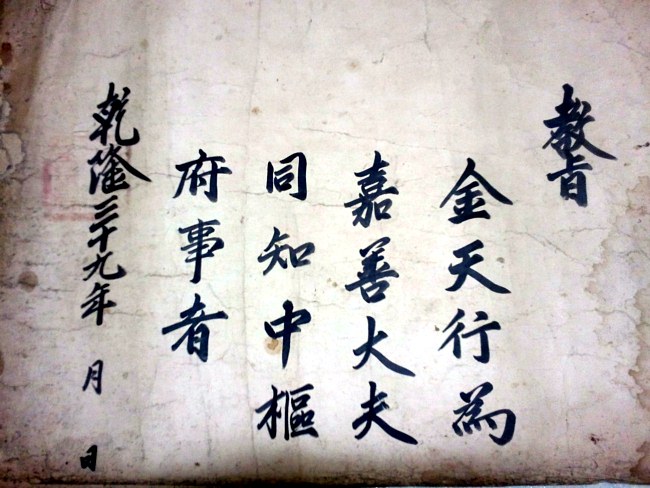 教旨
金天行為
嘉善大夫
同知中樞
府事者
乾隆三十九年 月 日